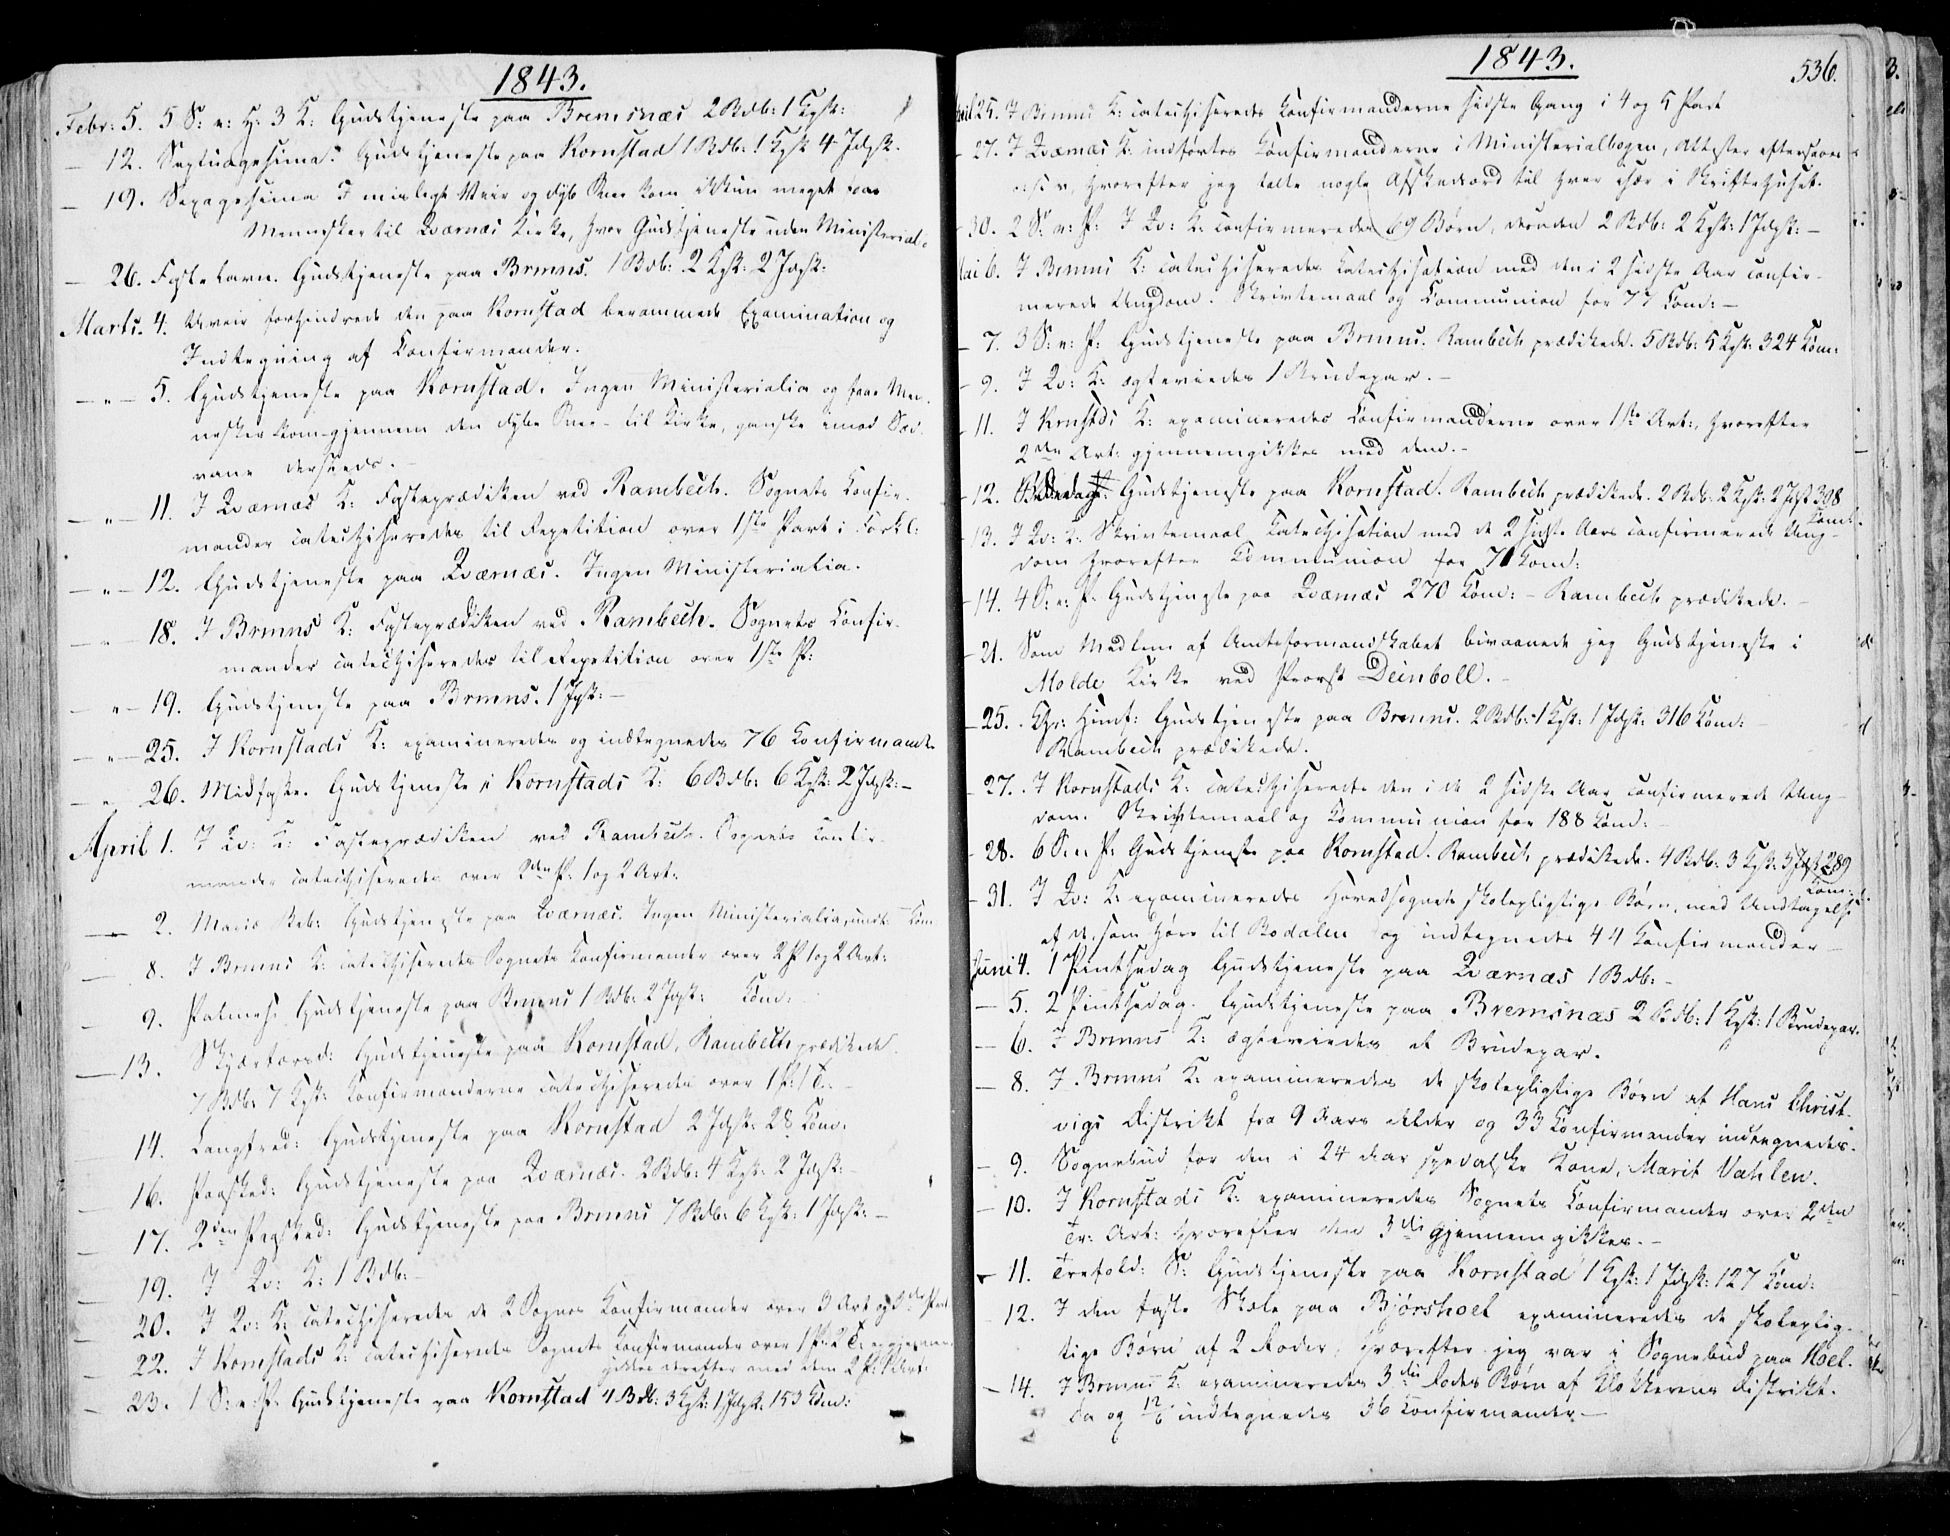 1843.
Febr: 5. 5 S: e: H: 3 K: Gudstjeneste paa Bremsnæs 2 Bdb: 1 Kgk:
— 12. Septuagesima. Gudstjeneste paa Kornstad 1 Bdb: 1 Kgk 4 Jdgk.
— 19. Sexagesima I Veir og dyb Snee kom ikkun meget faa
Mennesker til Qværnæs Kirke, hvor Gudstjeneste uden Ministerial:
— 26. Fastelavn. Gudstjeneste paa Brmns. 1 Bdb: 2 Kgk: 2 Jdgk:
Marts. 4. Uveir forhindrede den paa Kornstad berammede Examination og
Indtegning af Confirmander.
— " — 5. Gudstjeneste paa Kornstad. Ingen Ministerialia og faae Men-
nesker kom gjennem den dybe Snee til Kirke, ganske imod Sæd-
vane dersteds.
— " — 11. I Qværnæs K: Fasteprædiken ved Rambech. Sognets Confir-
mander catechiseredes til Repetition over 1ste Part i Forkl:
— " — 12. Gudstjeneste paa Qværnæs. Ingen Ministerialia.
— " — 18. I Brmns K: Fasteprædiken ved Rambech. Sognets Confir-
mander catechiseredes til Repetition over 1ste P:
— " — 19. Gudstjeneste paa Brmns. 1 Jgk: —
— " — 25. I Kornstads K: examineredes og indtegnedes 76 Confirmand:
— " 26. Midfaste. Gudstjeneste i Kornstads K: 6 Bdb: 6 Kgk: 2 Jdgk: —
April 1. I Qv: K: Fasteprædiken ved Rambech. Sognets Confir-
mander catechiseredes over 2den P: 1 og 2 Art:
— 2. Mariæ Beb: Gudstjeneste paa Qværnæs. Ingen Ministerialia, undt: Kom
— 8. I Brmns K: catechiseredes Sognets Confirmander over 2 P 1 og 2 Art:
— 9. Palmes: Gudstjeneste paa Brmns 1 Bdb: 2 Jdgk: Com:
— 13. Skjærtorsd: Gudstjeneste paa Kornstad, Rambech prædikede.
7 Bdb: 7 Kgk: Confirmanderne catechiseredes over 1 P: 1 T: —
— 14. Langfred: Gudstjeneste paa Kornstad 2 Jdgk: 28 Com:
— 16. Paasked: Gudstjeneste paa Qværnæs. 2 Bdb: 4 Kgk: 2 Jdgk: —
— 17. 2den Paasked: Gudstjeneste paa Brmns 7 Bdb: 6 Kgk: 1 Jdgk: —
— 19. I Qv: K: 1 Bdb: —
— 20. I Qv: K: catechiseredes de 2 Sognes Confirmander over 3 Art og 3die Part
— 22. I Kornstads K: catechiseredes Sognets Confirmander over 1 P: 2 T: og gjennem
gikkes derefter med dem 2 P: 1 Art:
— 23. 1 S: e: P: Gudstjeneste paa Kornstad 4 Bdb: 3 Kgk: 1 Jdgk. 153 Com:
1843.
536.
April 25. I Brmns K: catechiseredes Confirmanderne sidste Gang i 4 og 5 Part
— 27. I Qværnæs K: indførtes Confirmanderne i Ministerialbogen, Attester eftersaaes
hvorefter jeg talte nogle Afskedsord til hver især i Skriftehuset.
— 30. 2 S: e: P: I Qv: K: confirmeredes 69 Børn, desuden 2 Bdb: 2 Kgk: 1 Jdgk: —
Mai 6. I Brmns K: Catechisation med den i 2 sidste Aar confir-
merede Ungdom. Skriftemaal og Communion for 77 Com: —
— 7. 3 S: e: P: Gudstjeneste paa Brmns. Rambech prædikede. 5 Bdb: 5 Kgk: 324 Com:
— 9. I Qv: K: ægteviedes 1 Brudepar. —
— 11. I Krnstds K: examineredes Confirmanderne over 1ste Art:, hvorefter
2den Art: gjennemgikkes med dem. —
— 12. Bededag. Gudstjeneste paa Kornstad. Rambech prædikede. 2 Bdb: 2 Kgk: 2 Jdgk 308
Com:
— 13. I Qv: K: Skriftemaal Catechisation med de 2 sidste Aars confirmerede Ung-
dom hvorefter Communion for 71 Com:
— 14. 4 S: e: P: Gudstjeneste paa Qværnæs 270 Com: — Rambech prædikede. —
— 21. Som Medlem af Amtsformandskabet bivaanede jeg Gudstjeneste i
Molde Kirke ved Provst Deinboll. —
— 25. Chr: Himf: Gudstjeneste paa Brmns. 2 Bdb: 1 Kgk: 1 Jdgk: 316 Com:
Rambech prædikede.
— 27. I Kornstads K: catechiseredes den i de 2 sidste Aar confirmerede Ung-
dom. Skriftemaal og Communion for 188 Com:
— 28. 6 S: e: P: Gudstjeneste paa Kornstad. Rambech prædikede. 4 Bdb: 3 Kgk: 3 Jdgk 289
Com:
— 31. I Qv: K: examineredes Hovedsognets skolepligtige Børn, med Undtagelse
af de, som høre til Bodalen og indtegnedes 44 Confirmander —
Juni 4. 1 Pintsedag Gudstjeneste paa Qværnæs 1 Bdb: —
— 5. 2 Pintsedag. Gudstjeneste paa Bremsnæs 2 Bdb: 1 Kgk: 1 Brudepar.
— 6. I Brmns K: ægteviedes et Brudepar.
— 8. I Brmns K: examineredes de skolepligtige Børn af Hans Christ-
vigs Distrikt fra 9 Aars Alder og 33 Confirmander indtegnedes.
— 9. Sognebud for den i 24 Aar spedalske Kone, Marit Vahlen.
— 10. I Kornstads K: examineredes Sognets Confirmander over 2den
Tr: Art: hvorefter den 3die gjennemgikkes. —
— 11. Trefold: S: Gudstjeneste paa Kornstad 1 Kgk: 1 Jdgk: 127 Com:
12. I den faste Skole paa Bjørshoel examineredes de skoleplig-
tige Børn af 2 Roder, hvorefter jeg var i Sognebud paa Hoel.
— 14. I Brmns K: examineredes 3die Rodes Børn af Klokkerens Distrikt.
Da og 12/6 indtegnedes 36 Confirmander —